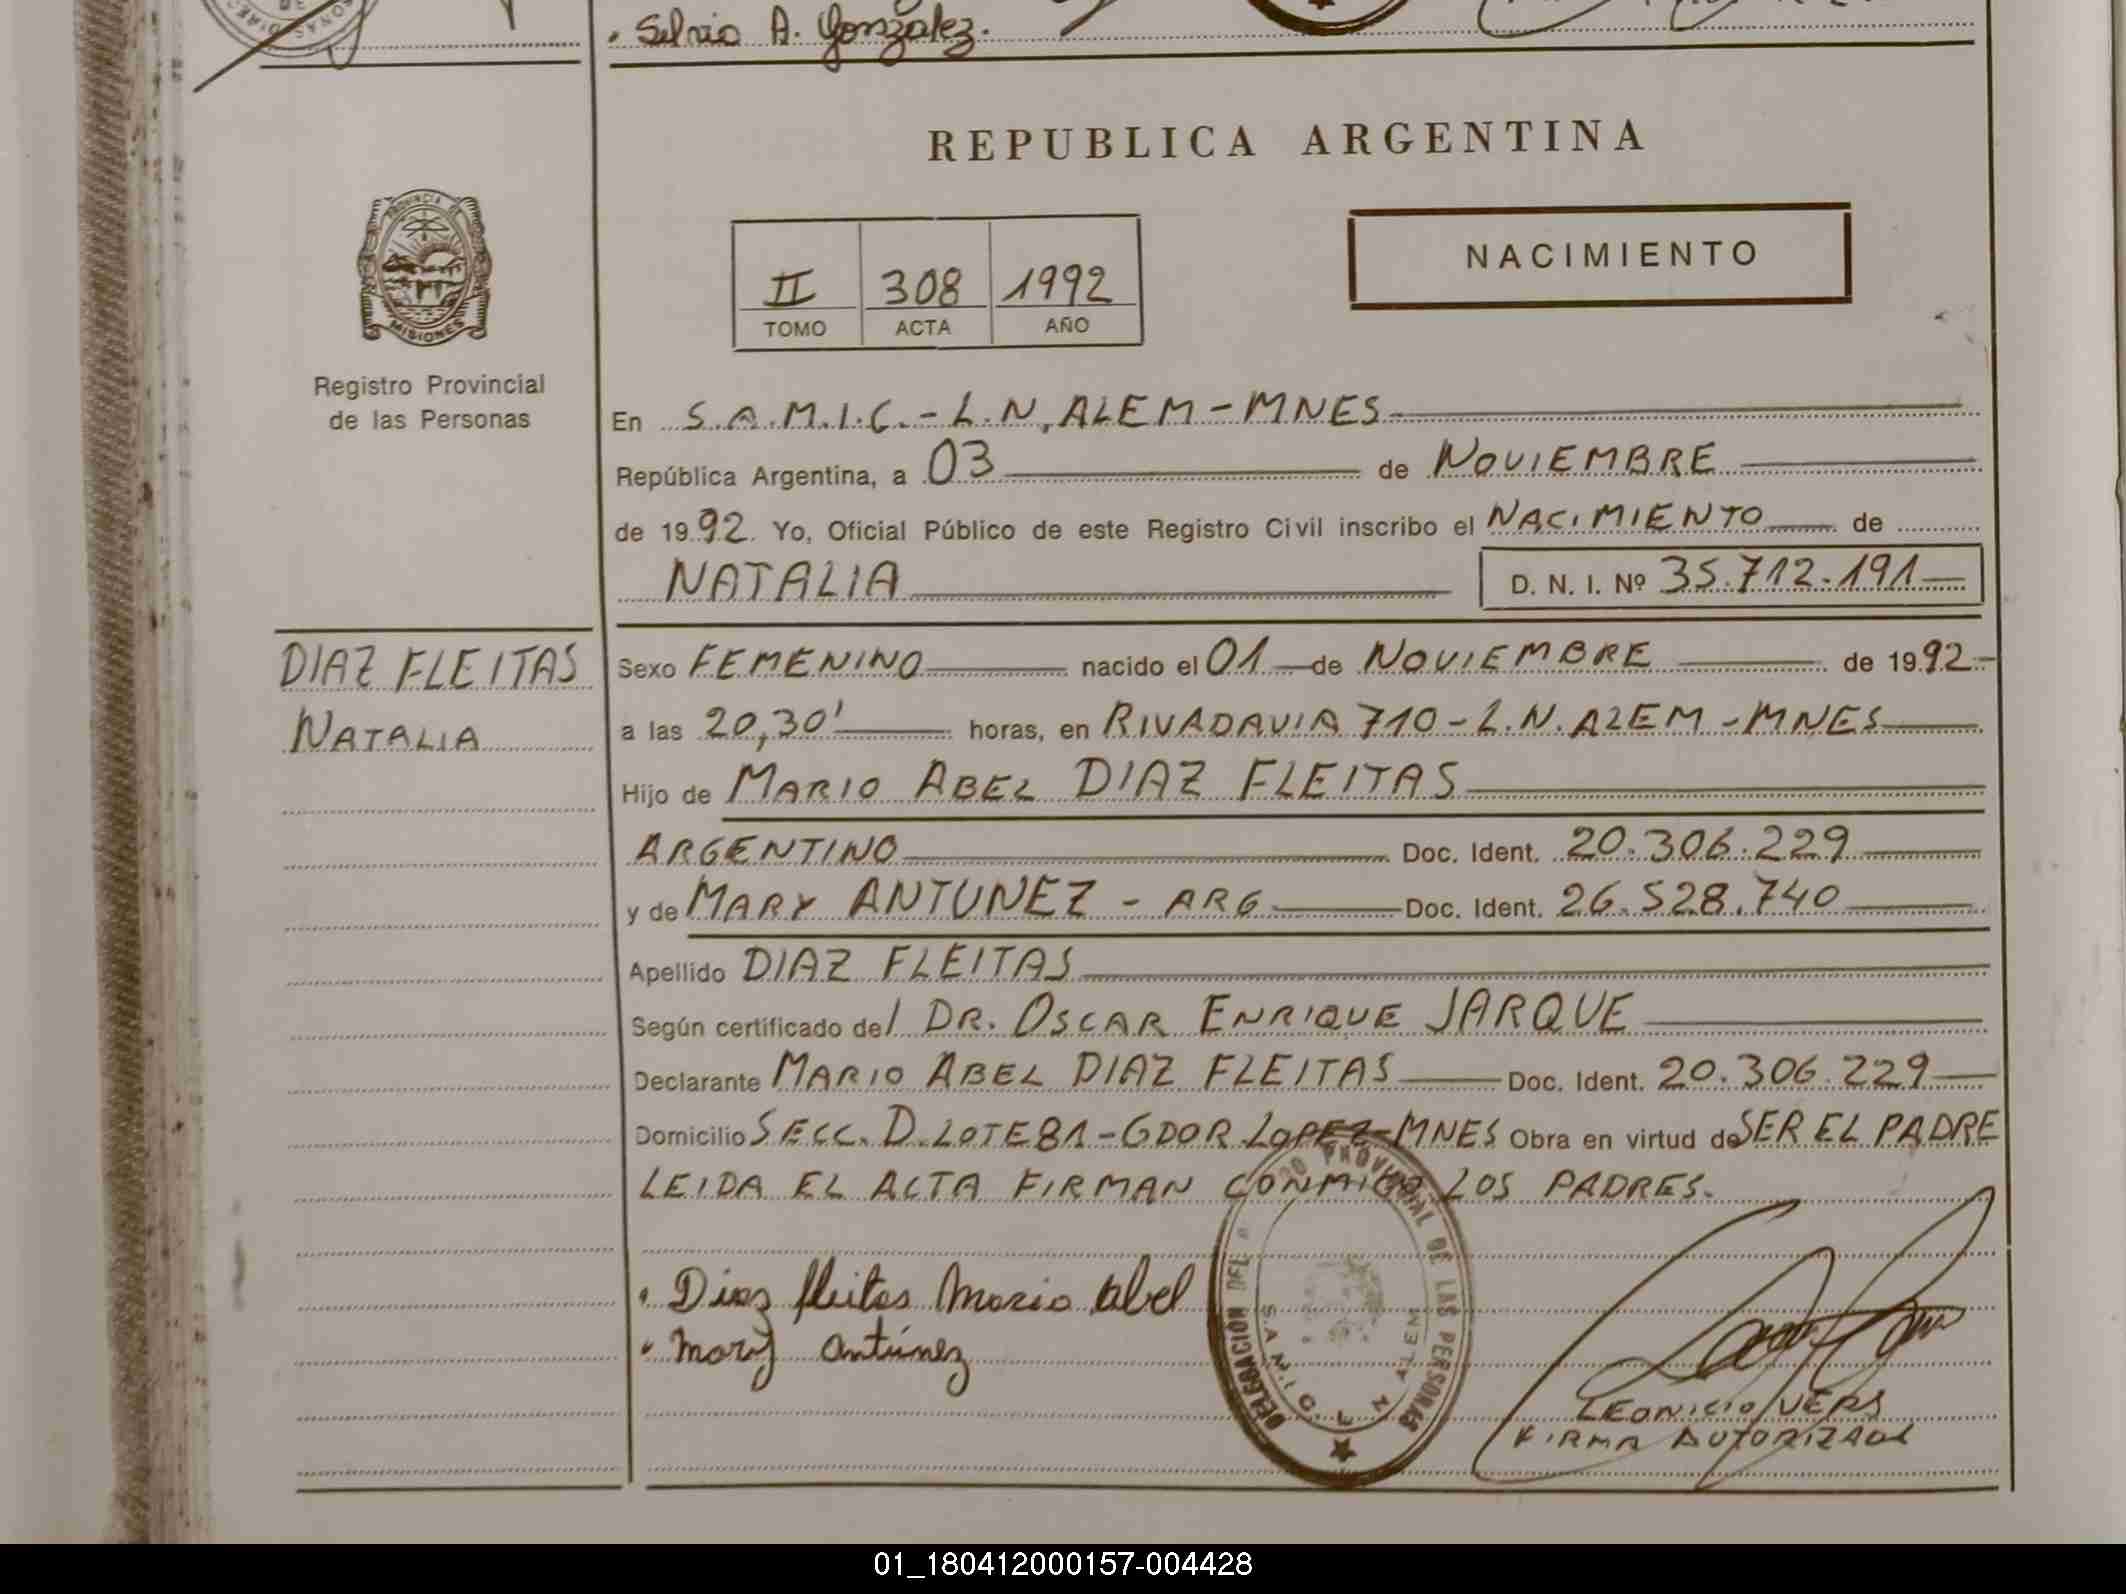 Silvio A. Gonzalez.
REPUBLICA ARGENTINA
NACIMIENTO
II 308 1992
TOMO ACTA AÑO
PROVINCIA DE
MISIONES
Registro Provincial
de las Personas
En S.A.M.I.C.-L.N.ALEM-MNES
República Argentina, a 03 de NOVIEMBRE
de 1992. Yo, Oficial Público de este Registro Civil inscribo el NACIMIENTO de
NATALIA D. N. I. Nº 35.712.191
DIAZ FLEITAS
NATALIA
Sexo FEMENINO nacido el 01 de NOVIEMBRE de 1992
a las 20,30' horas, en RIVADAVIA 710-L.N.ALEM-MNES
Hijo de MARIO ABEL DIAZ FLEITAS
ARGENTINO Doc. Ident. 20.306.229
y de MARY ANTUNEZ - ARG Doc. Ident. 26.528.740
Apellido DIAZ FLEITAS
Según certificado del DR. OSCAR ENRIQUE JARQUE
Declarante MARIO ABEL DIAZ FLEITAS Doc. Ident. 20.306.229
Domicilio SECC. D. LOTE 81-GDOR LOPEZ-MNES Obra en virtud de SER EL PADRE
LEIDA EL ACTA FIRMAN CONMIGO LOS PADRES.
Diaz fleitas Mario abel
Mary Antúnez
DELEGACIÓN DEL PROVINCIAL DE LAS PERSONAS
ALEM
LEONICIO VERS
FIRMA AUTORIZADA
01_180412000157-004428